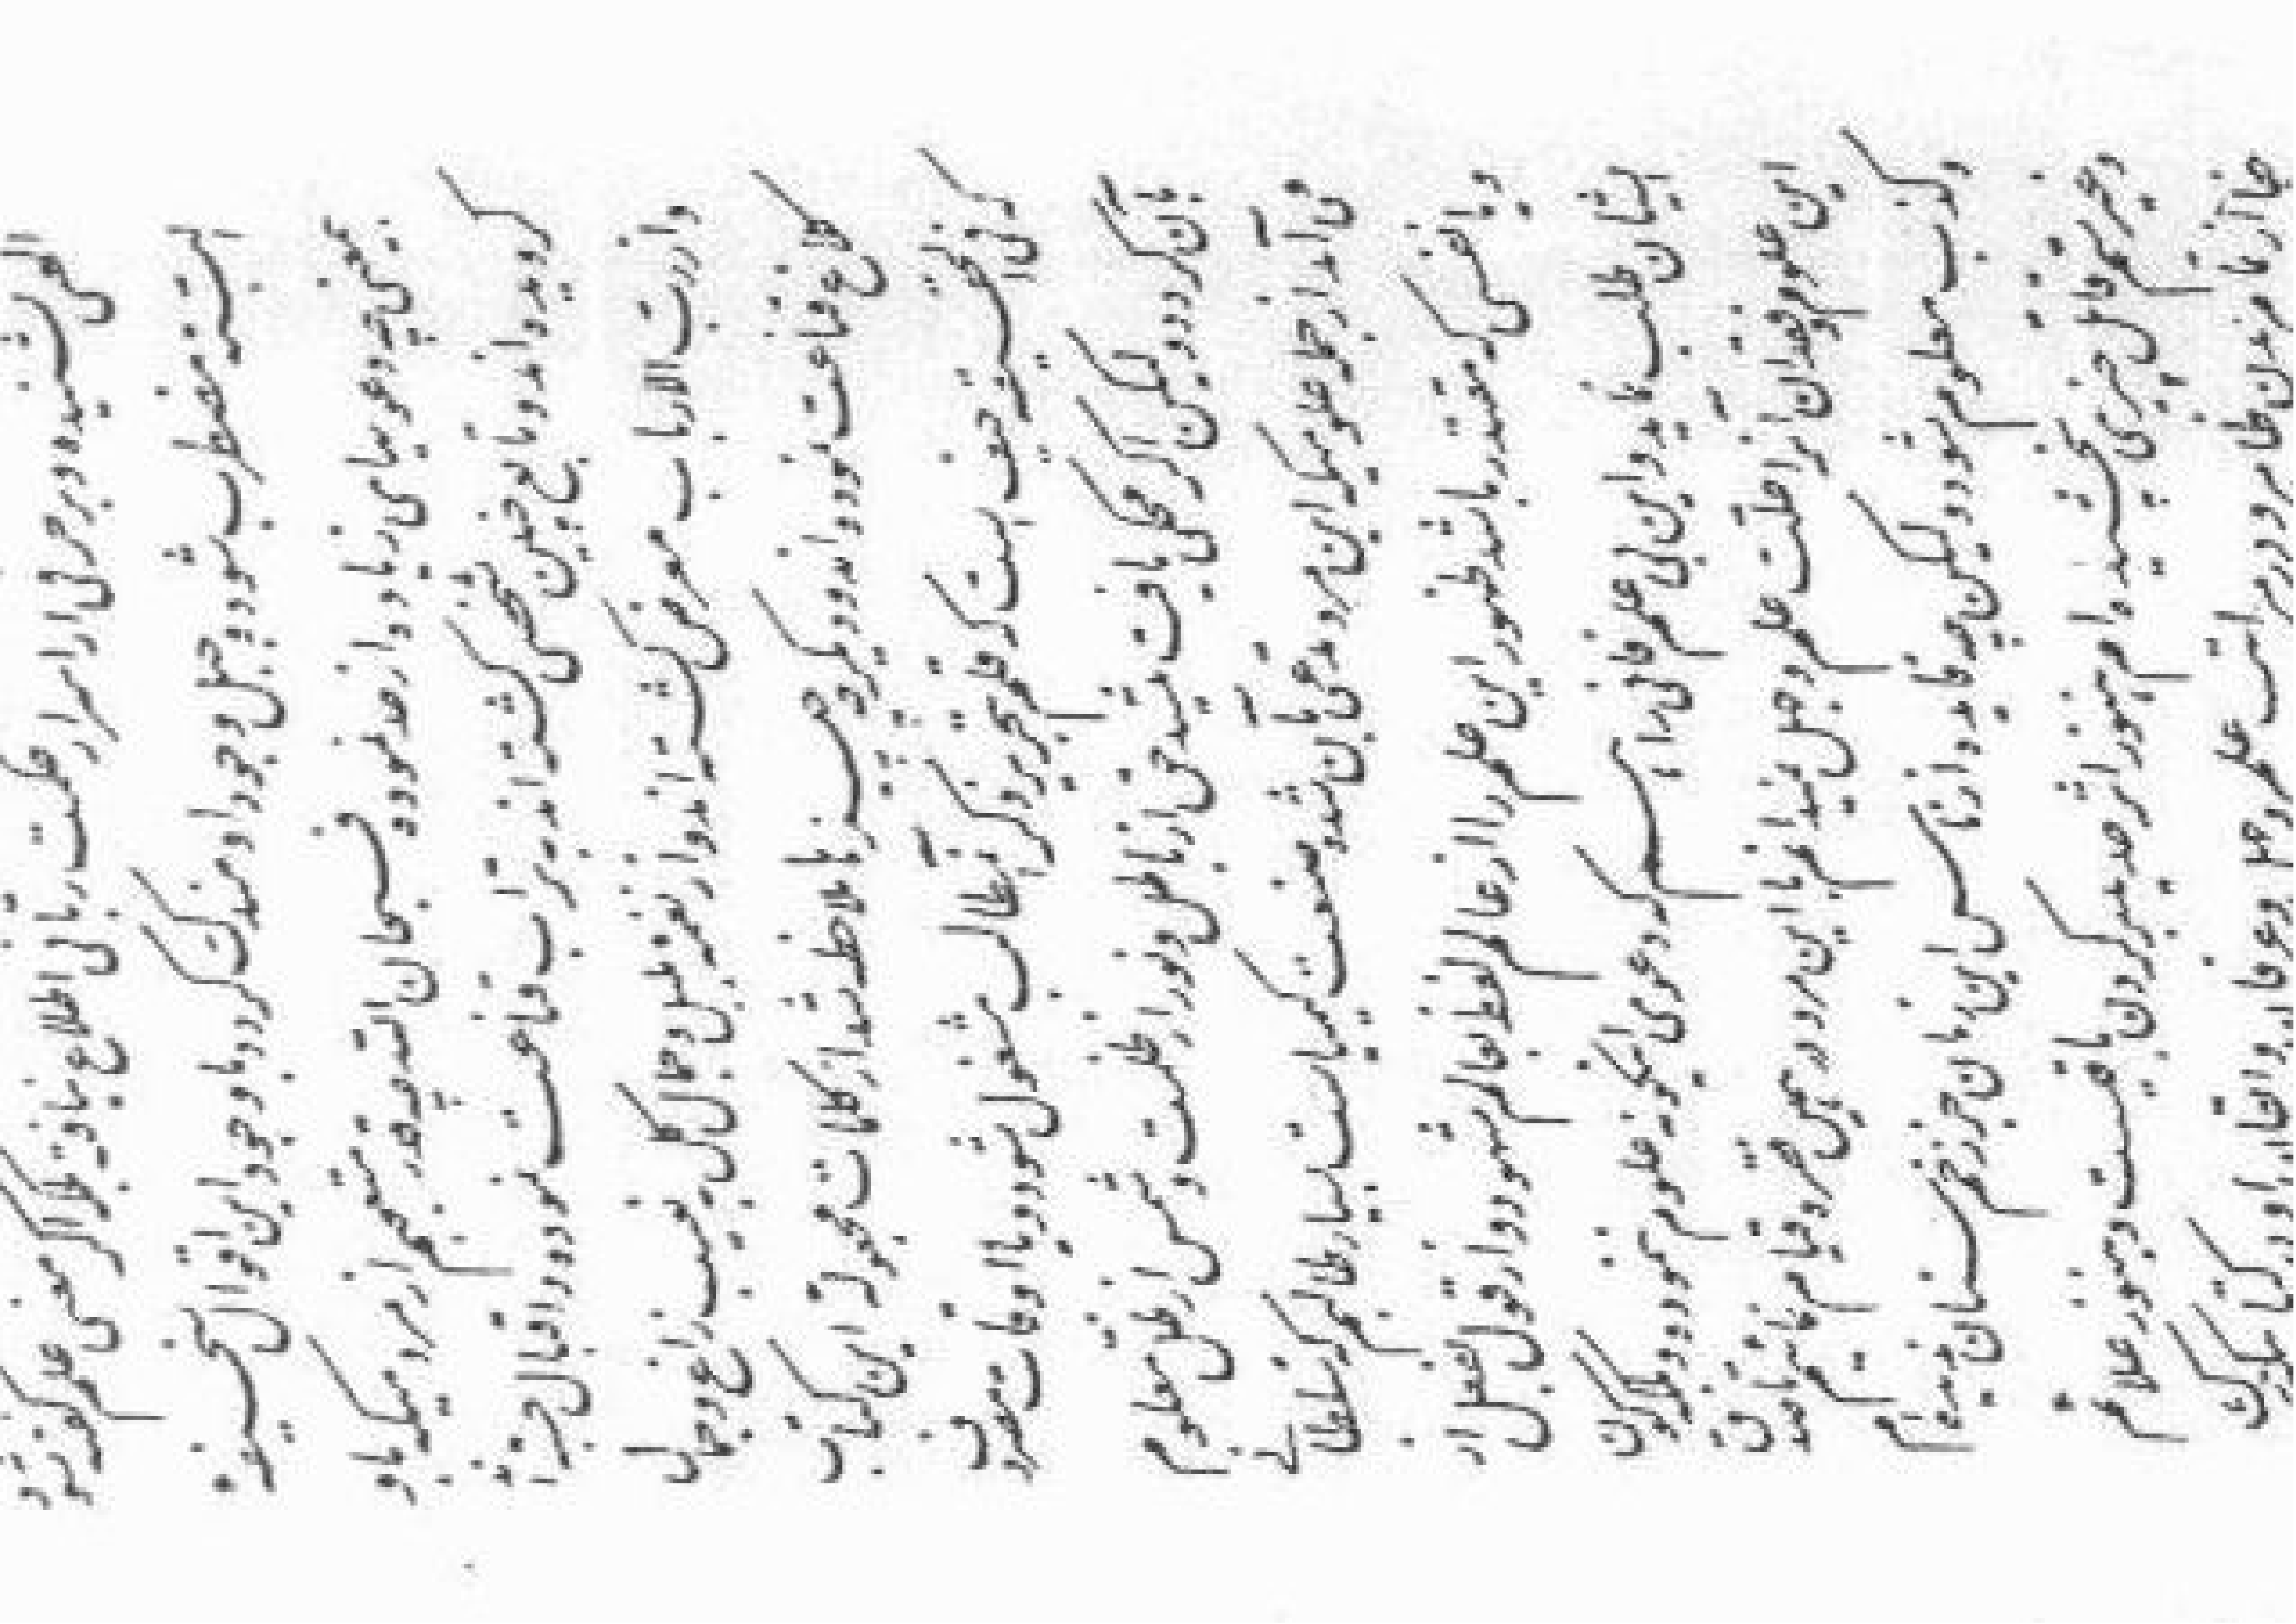 العین نشنیده و بر حرفی از اسرار حکمت ربانی اطلاع نیافته فلا اگر معنی علم گفته شود
البته مضطرب شود و جبل وجود او مندک گردد با وجود این اقوال سخیفه
بیمعنی چه دعویهای زیاده از حد نموده فسبحان الله چقدر متعجبم از مردمیکه باو
گرویده‌اند و تابع چنین شخصی گشته‌اند بتراب قناعت نموده و اقبال جسته‌اند
و از رب الارباب معرض گشته‌اند و از نغمه بلبل و جمال گل بنعیب زاغ و جمال
کلاغ قناعت نموده‌اند و دیگر چه چیزها ملاحظه شد از کلمات مجعوله این کتاب
فی الحقیقه حیف است که قلم بتحریر ذکر آن مطالب مشغول شود و یا اوقات مصروف
بآن گردد ولیکن اگر محکی یافت میشد حق از باطل و نور از ظلمت و شمس از ظل معلوم
می‌آمد از جمله علومیکه این مرد مدعی بآن شده صنعت کیمیاست بسیار طالبم که سلطانی
و یا نفسی که مقتدر باشد ظهور این علم را از عالم لفظ بعالم شهود و از قول بفعل از
ایشان طلب نماید و این بی علم فانی هم که دعوی اینگونه علوم ننموده و بلکه کون
این علوم و فقدان آنرا علت علم و جهل نمیدانم با این مرد در همین فقره قیام نمائیم تا صدق
و کذب معلوم شود ولیکن چه فایده از ناس این زمان جز زخم سنان ندیده‌ام
و بغیر سم قاتل چیزی نچشیده‌ام هنوز اثر حدید بر گردن باقیست و هنوز علائم
جفا از تمام بدن ظاهر و در مراتب علم و جهل و عرفان و ایقان او در کتابیکه ترک